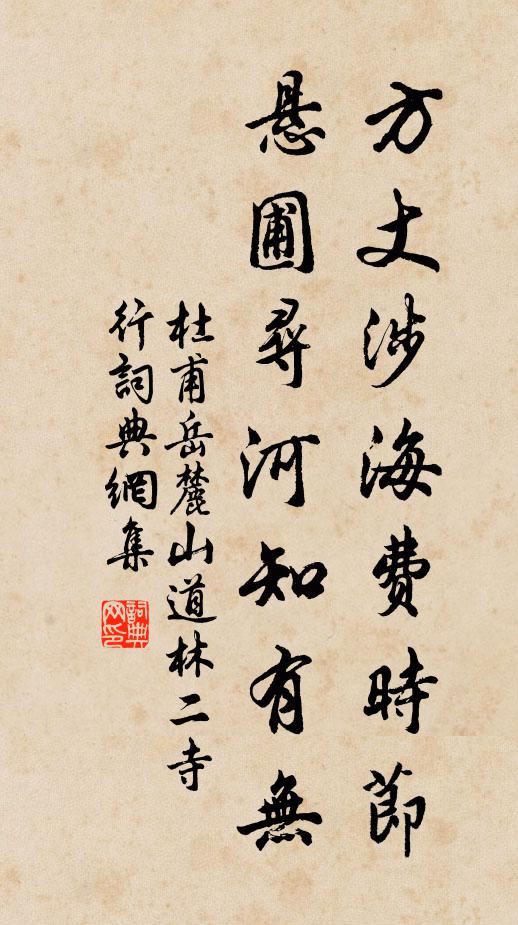 方丈涉海費時節
悬圃尋河知有無
杜甫岳麓山道林二寺
行詞典網集
詞典網印